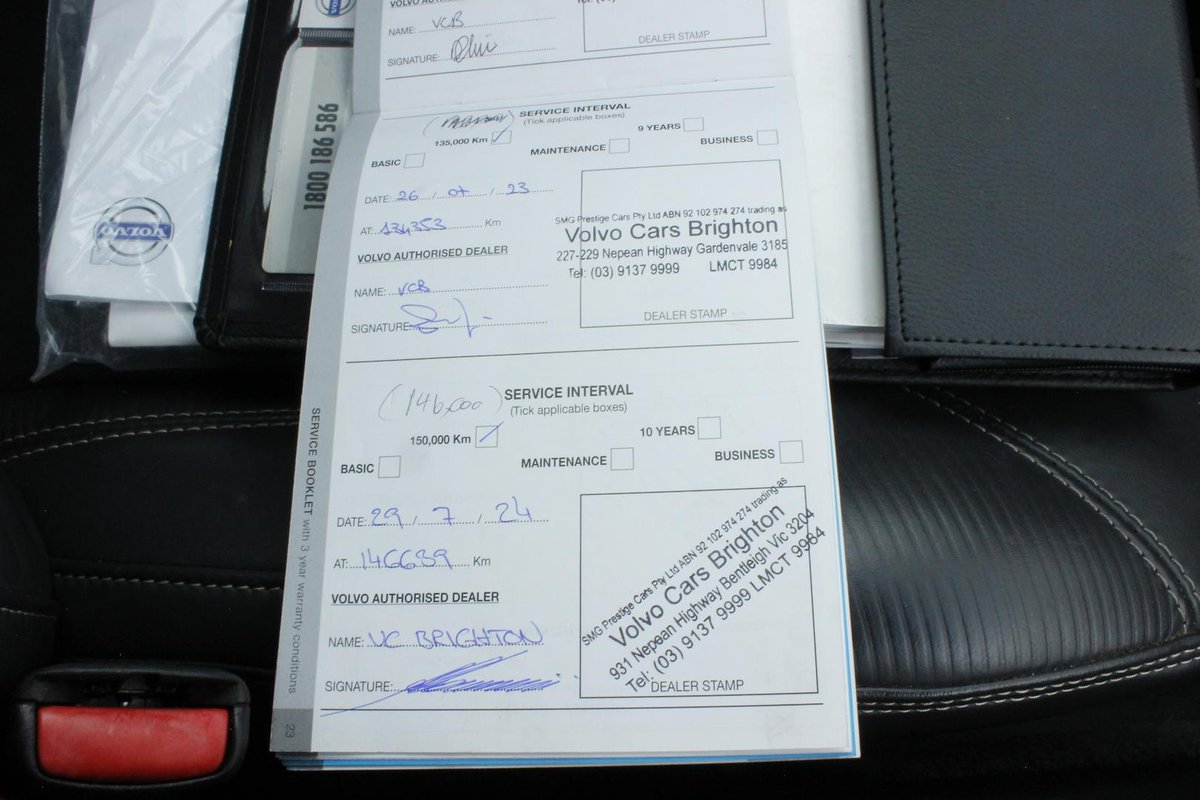 VOLVO AUTHORISED DEALER
NAME: VCB
SIGNATURE:
DEALER STAMP
VOLVO
1800 186 586
SERVICE INTERVAL
(Tick applicable boxes)
135,000 Km
9 YEARS
BASIC
MAINTENANCE
BUSINESS
DATE: 26 / 07 / 23
AT: 134353 Km
VOLVO AUTHORISED DEALER
NAME: VCB
SIGNATURE:
SMG Prestige Cars Pty Ltd ABN 92 102 974 274 trading as
Volvo Cars Brighton
227-229 Nepean Highway Gardenvale 3185
Tel: (03) 9137 9999 LMCT 9984
DEALER STAMP
(146,000)
SERVICE INTERVAL
(Tick applicable boxes)
150,000 Km
10 YEARS
BASIC
MAINTENANCE
BUSINESS
DATE: 29 / 7 / 24
AT: 146689 Km
VOLVO AUTHORISED DEALER
NAME: VC BRIGHTON
SIGNATURE:
SMG Prestige Cars Pty Ltd ABN 92 102 974 274 trading as
Volvo Cars Brighton
931 Nepean Highway Bentleigh Vic 3204
Tel: (03) 9137 9999 LMCT 9984
DEALER STAMP
SERVICE BOOKLET with 3 year warranty conditions
23